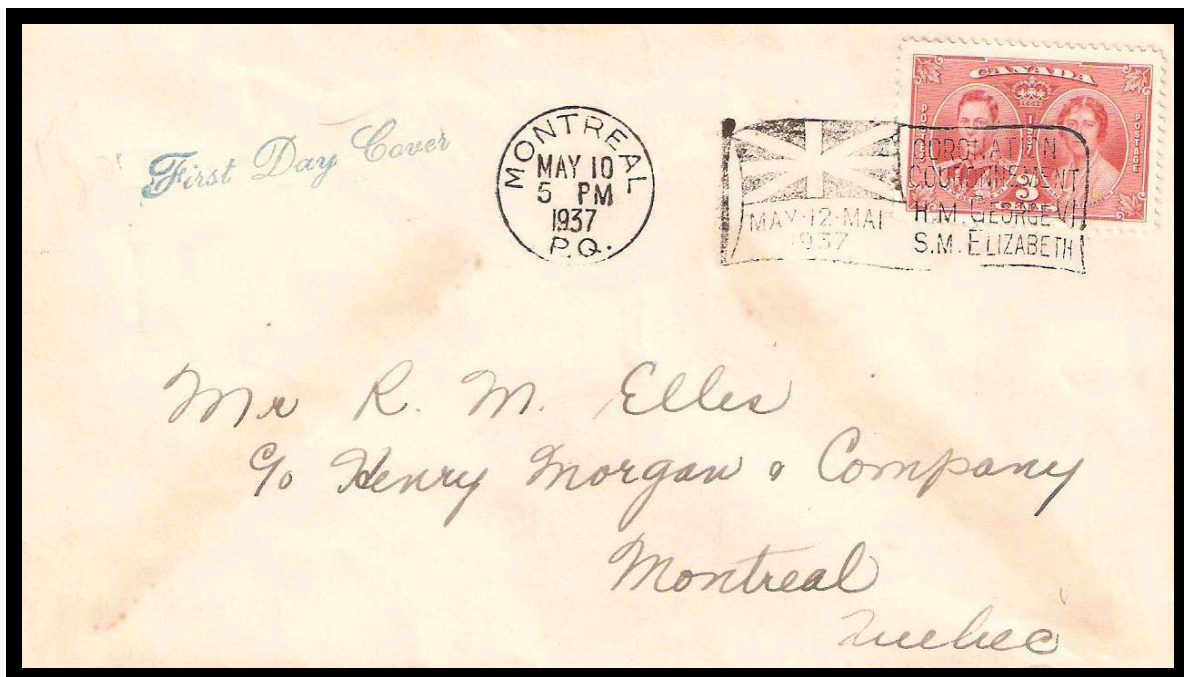 First Day Cover
MONTREAL
MAY 10
5 PM
1937
P.Q.
MAY·12·MAI
1937
CORONATION
COURONNEMENT
H.M. GEORGE VI
S.M. ELIZABETH
CANADA
POSTAGE
1937
POSTAGE
3
CENTS
Mr R. M. Elles
c/o Henry Morgan & Company
Montreal
Quebec